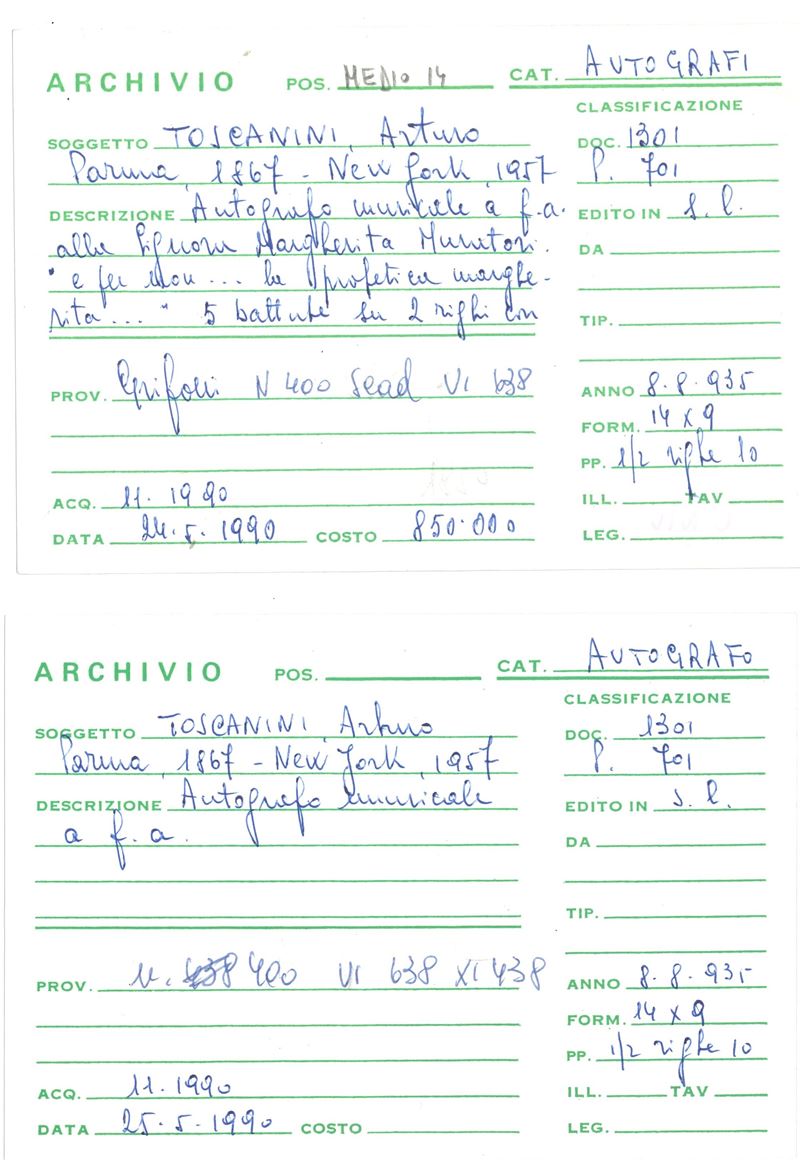 ARCHIVIO POS. MEDIO 14 CAT. AUTOGRAFI
CLASSIFICAZIONE
SOGGETTO TOSCANINI, Arturo DOC. 1301
Parma, 1867 - New York, 1957 P. 701
DESCRIZIONE Autografo musicale a f.a. EDITO IN s. l.
alla Signora Margherita Muratori. DA
" e fu ... la profetica marghe-
rita... " 5 battute su 2 righi con TIP.
PROV. Grifoni N 400 Sead VI 638 ANNO 8.8.935
FORM. 14 x 9
PP. 1/2 righe 10
ACQ. 11.1990 ILL. TAV
DATA 24.5.1990 COSTO 850.000 LEG.
ARCHIVIO POS. CAT. AUTOGRAFO
CLASSIFICAZIONE
SOGGETTO TOSCANINI, Arturo DOC. 1301
Parma, 1867 - New York, 1957 P. 701
DESCRIZIONE Autografo musicale EDITO IN s. l.
a f. a. DA
TIP.
PROV. N. 400 VI 638 XI 438 ANNO 8.8.935
FORM. 14 x 9
PP. 1/2 righe 10
ACQ. 11.1990 ILL. TAV
DATA 25.5.1990 COSTO LEG.